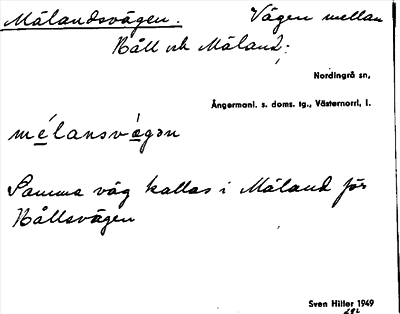 Mälandsvägen. Vägen mellan
Båll och Mäland:
Nordingrå sn,
Ångermanl. s. doms. tg., Västernorrl. l.
mélansvágən
Samma väg kallas i Mäland för
Bållsvägen
Sven Hiller 1949